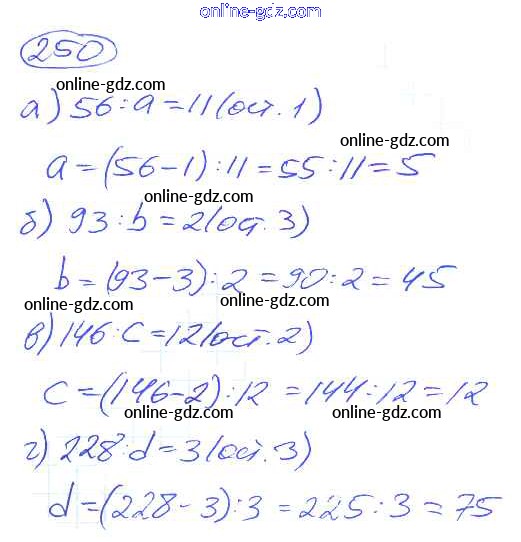 online-gdz.com
250
online-gdz.com
а) 56 : a = 11 (ост. 1)
online-gdz.com
a = (56 - 1) : 11 = 55 : 11 = 5
online-gdz.com
б) 93 : b = 2 (ост. 3)
online-gdz.com
b = (93 - 3) : 2 = 90 : 2 = 45
online-gdz.com online-gdz.com
в) 146 : c = 12 (ост. 2)
online-gdz.com
c = (146 - 2) : 12 = 144 : 12 = 12
online-gdz.com online-gdz.com
г) 228 : d = 3 (ост. 3)
online-gdz.com
d = (228 - 3) : 3 = 225 : 3 = 75